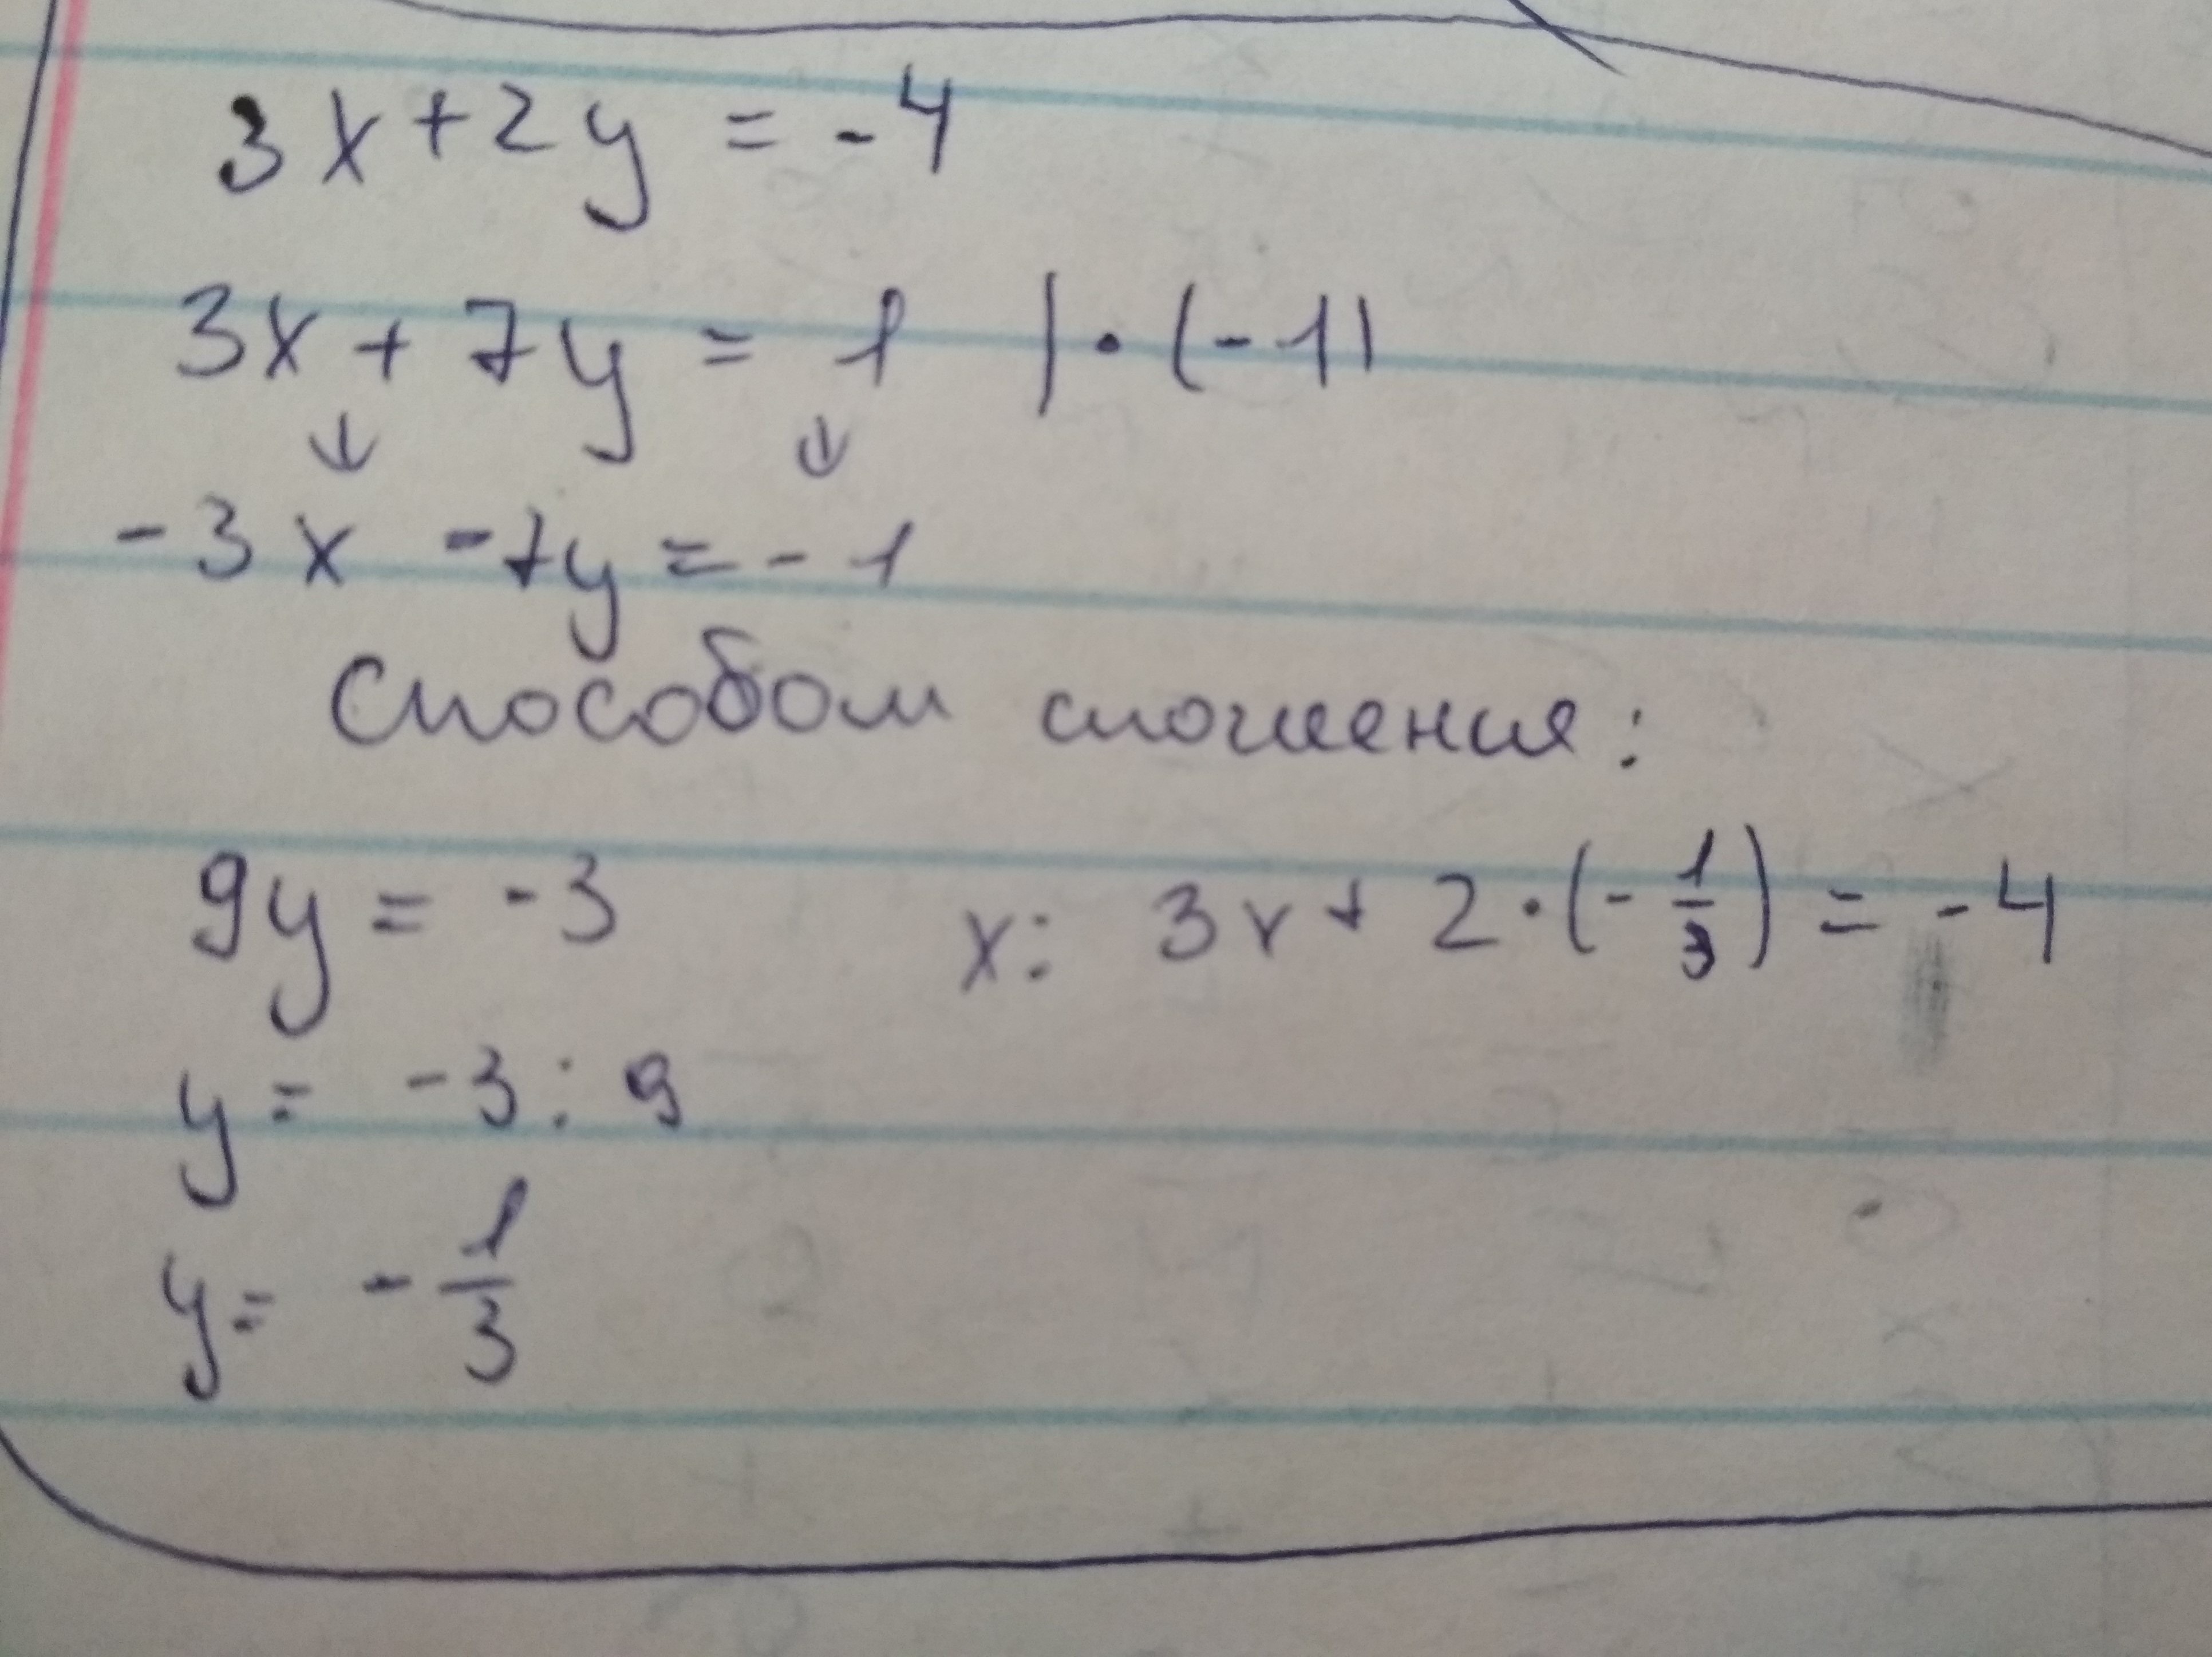 3x + 2y = -4
3x + 7y = 1 | · (-1)
↓ ↓
-3x -7y = -1
Способом сложения:
9y = -3 x: 3x + 2 · (-1/3) = -4
y = -3 : 9
y = -1/3